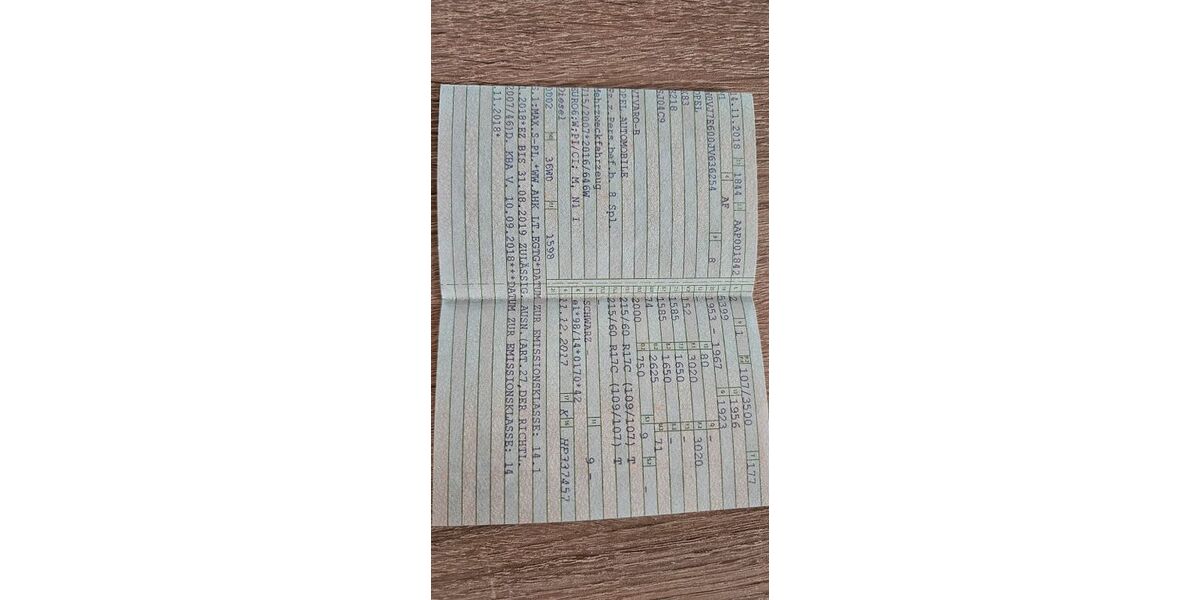 4.11.2018 1844 AAP001842
AF
W0VJ7E600JV636254 8
OPEL
X83
X218
SJ04C9
VIVARO-B
OPEL AUTOMOBILE
Fz.z.Pers.bef.b. 8 Spl.
Mehrzweckfahrzeug
715/2007*2016/646W
EURO6;W;PI/CI; M, N1 I
Diesel
0002 36W0 1598
2 1 107/3500 177
5399 1956
1953 - 1967 1923
- 80 -
152 3020 3020
1585 1650 -
1585 1650 -
74 2625 71
2000 750 9 -
215/60 R17C (109/107) T
215/60 R17C (109/107) T
-
SCHWARZ - 9 -
e1*98/14*0170*42
11.12.2017 K HP337457
S.1:MAX.S-PL.*WW.AHK LT.EGTG*DATUM ZUR EMISSIONSKLASSE: 14.1
1.2018*EZ BIS 31.08.2019 ZULÄSSIG, AUSN.(ART.27,DER RICHTL.
2007/46)D. KBA V. 10.09.2018***DATUM ZUR EMISSIONSKLASSE: 14
.11.2018*